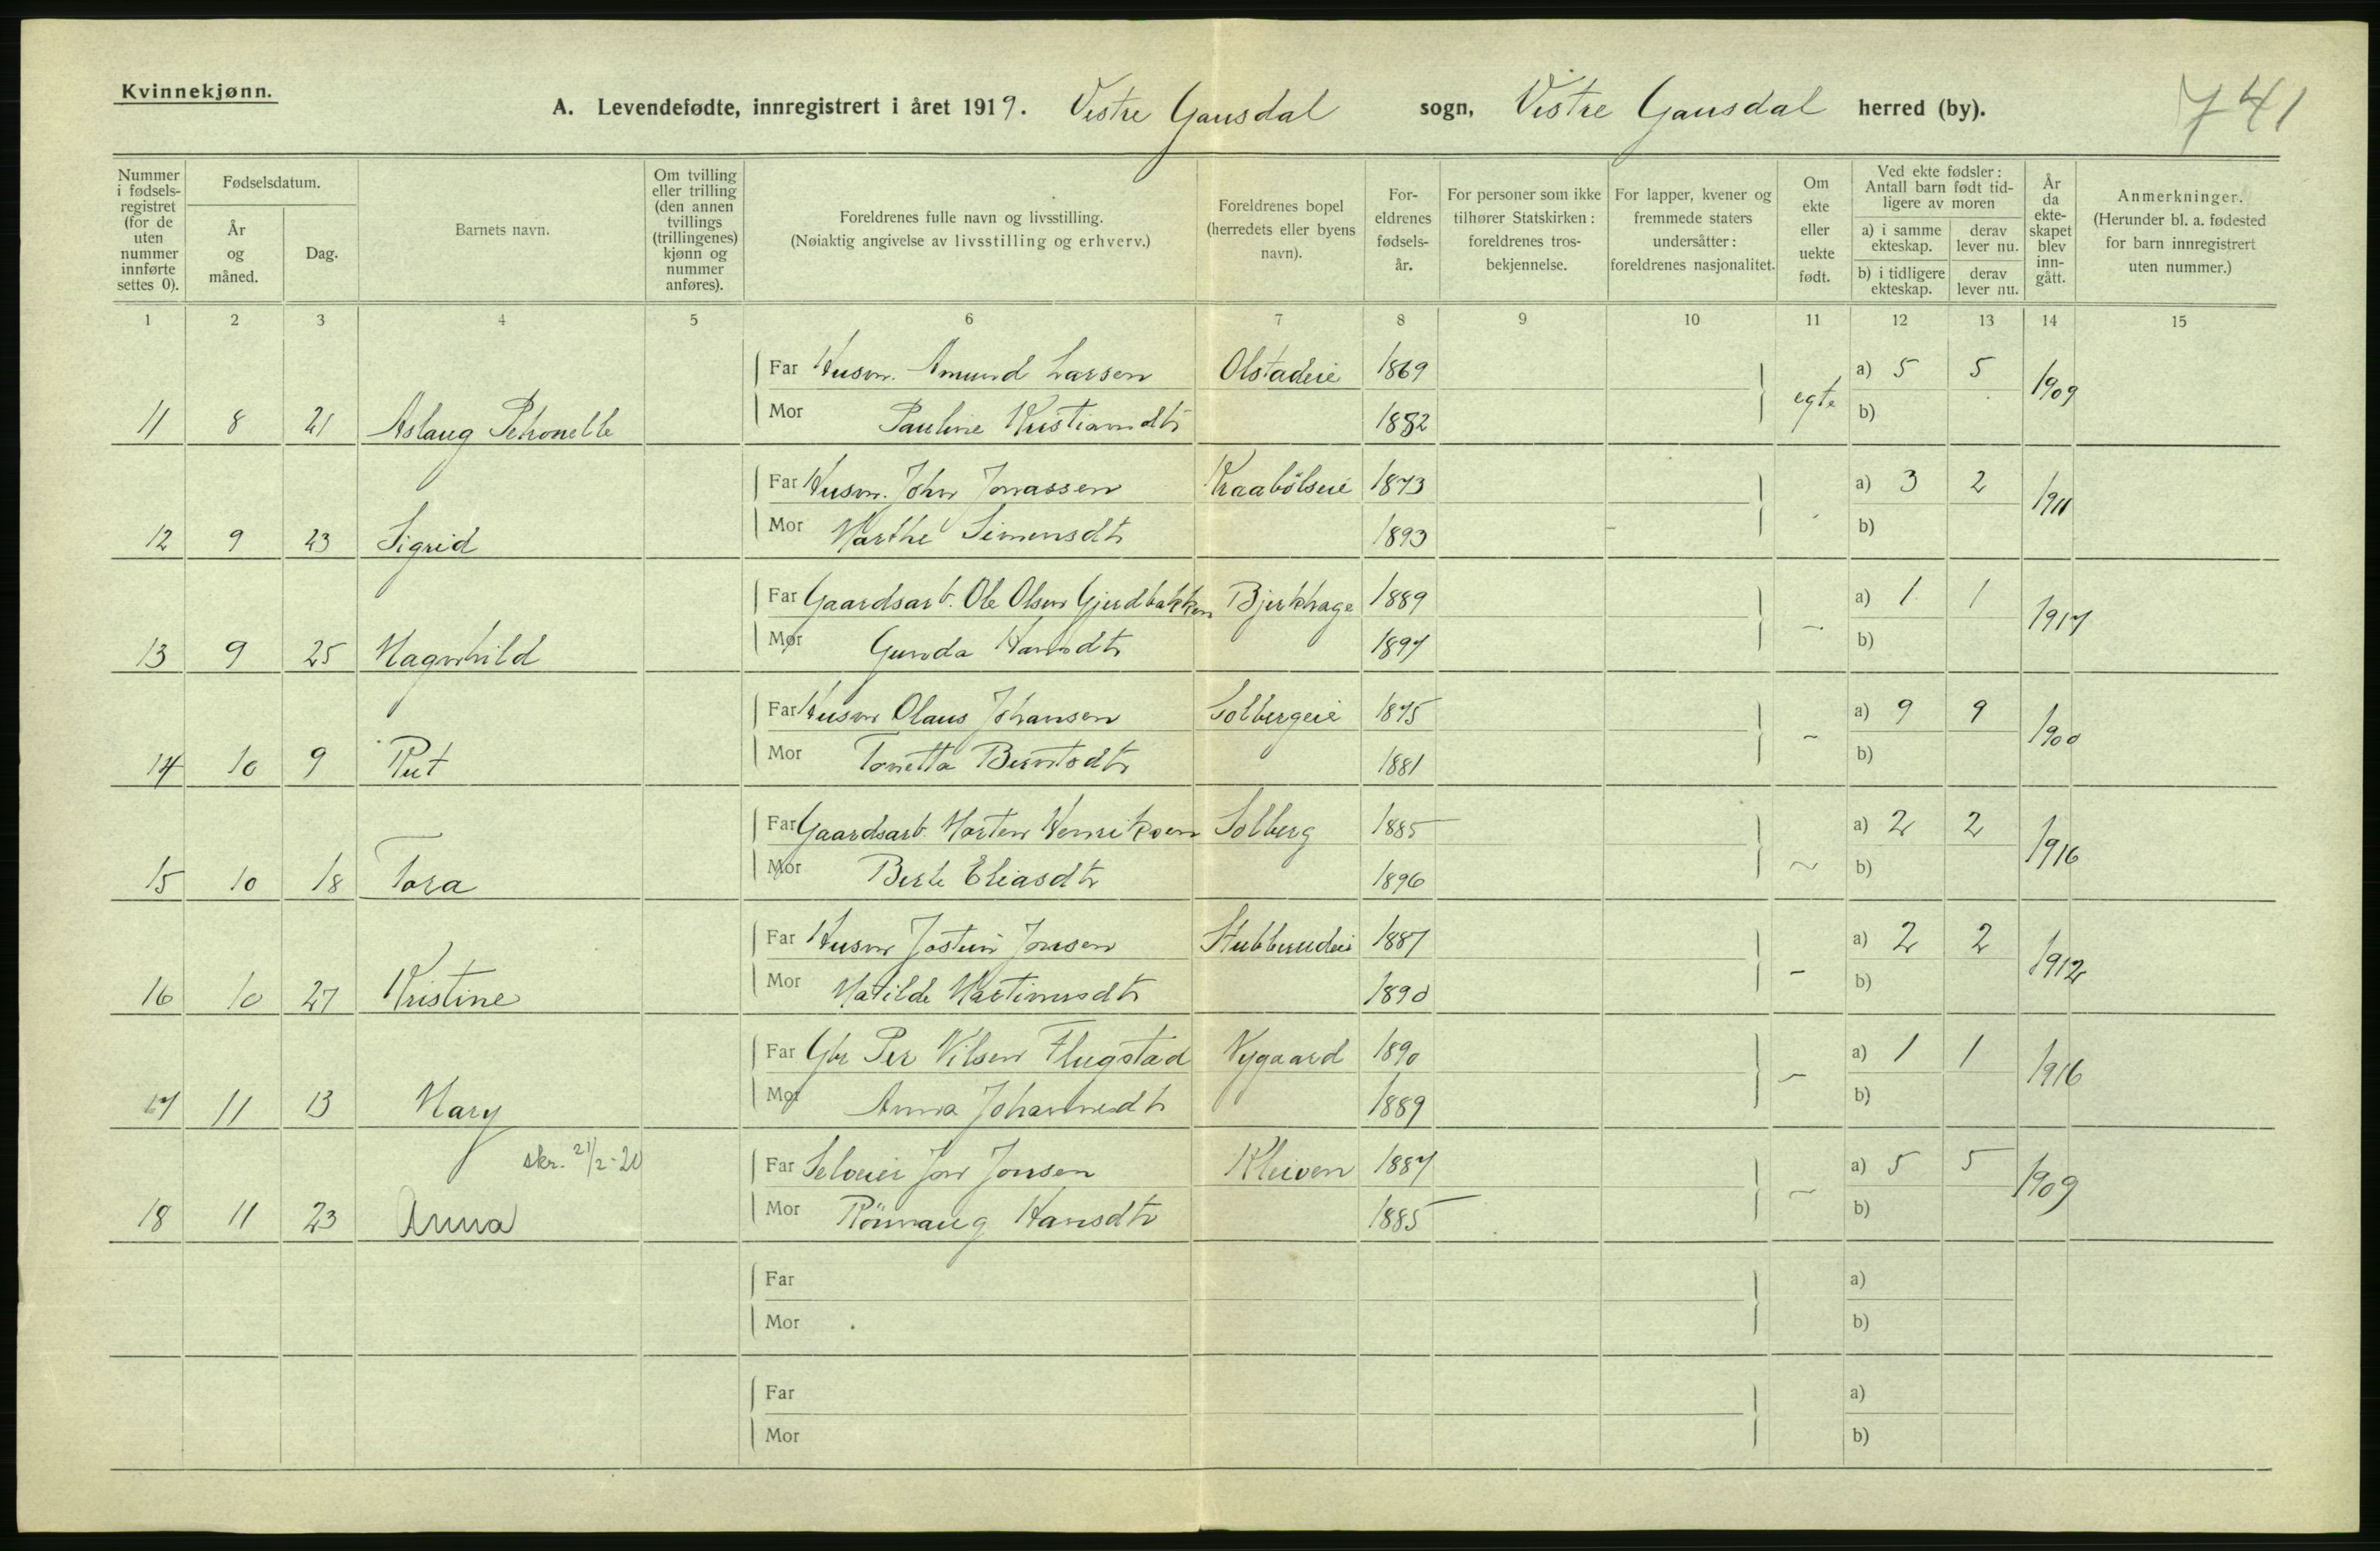 Kvinnekjønn.
A. Levendefødte, innregistrert i året 1919. Vestre Gausdal sogn, Vestre Gausdal herred (by).
741
Nummer i fødsels-registret (for de uten nummer innførte settes 0).
Fødselsdatum.
År og måned.
Dag.
Barnets navn.
Om tvilling eller trilling (den annen tvillings (trillingenes) kjønn og nummer anføres).
Foreldrenes fulle navn og livsstilling.
(Nøiaktig angivelse av livsstilling og erhverv.)
Foreldrenes bopel (herredets eller byens navn).
For-eldrenes fødsels-år.
For personer som ikke tilhører Statskirken: foreldrenes tros-bekjennelse.
For lapper, kvener og fremmede staters undersåtter: foreldrenes nasjonalitet.
Om ekte eller uekte født.
Ved ekte fødsler: Antall barn født tid-ligere av moren
a) i samme ekteskap.
derav lever nu.
b) i tidligere ekteskap.
derav lever nu.
År da ekte-skapet blev inn-gått.
Anmerkninger.
(Herunder bl. a. fødested for barn innregistrert uten nummer.)
1 2 3 4 5 6 7 8 9 10 11 12 13 14 15
Far Husm. Amund Larsen Olstadeie 1869 a) 5 5
11 8 21 Aslaug Petronelle Mor Pauline Kristiansdtr 1882 egte b) 1909
Far Husm. John Jonassen Kraabölseie 1873 a) 3 2
12 9 23 Sigrid Mor Marthe Simensdtr 1893 b) 1911
Far Gaardsarb. Ole Olsen Gjerdbakken Bjerkhage 1889 a) 1 1
13 9 25 Magnhild Mor Gunda Hansdtr 1897 - b) 1917
Far Husm Olaus Johansen Solbergeie 1875 a) 9 9
14 10 9 Rut Mor Tonetta Berntsdtr 1881 - b) 1900
Far Gaardsarb. Morten Henriksen Solberg 1885 a) 2 2
15 10 18 Tora Mor Berte Eliasdtr 1896 ~ b) 1916
Far Husm Jostein Jonsen Stubberudeie 1887 a) 2 2
16 10 27 Kristine Mor Matilde Martinusdtr 1890 - b) 1912
Far Gbr Per Nilsen Flugstad Nygaard 1890 a) 1 1
17 11 13 Mary Mor Anna Johannesdtr 1889 - b) 1916
skr. 21/2-20
Far Selveier Jon Jonsen Kleven 1887 a) 5 5
18 11 23 Anna Mor Rönnaug Hansdtr 1885 ~ b) 1909
Far a)
Mor b)
Far a)
Mor b)